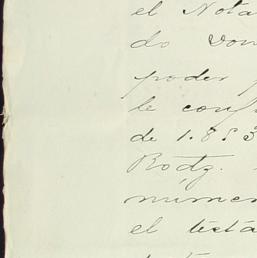 el Nota
do Don
poder
le conf
de 1.853
Rodz.
númer
el testa